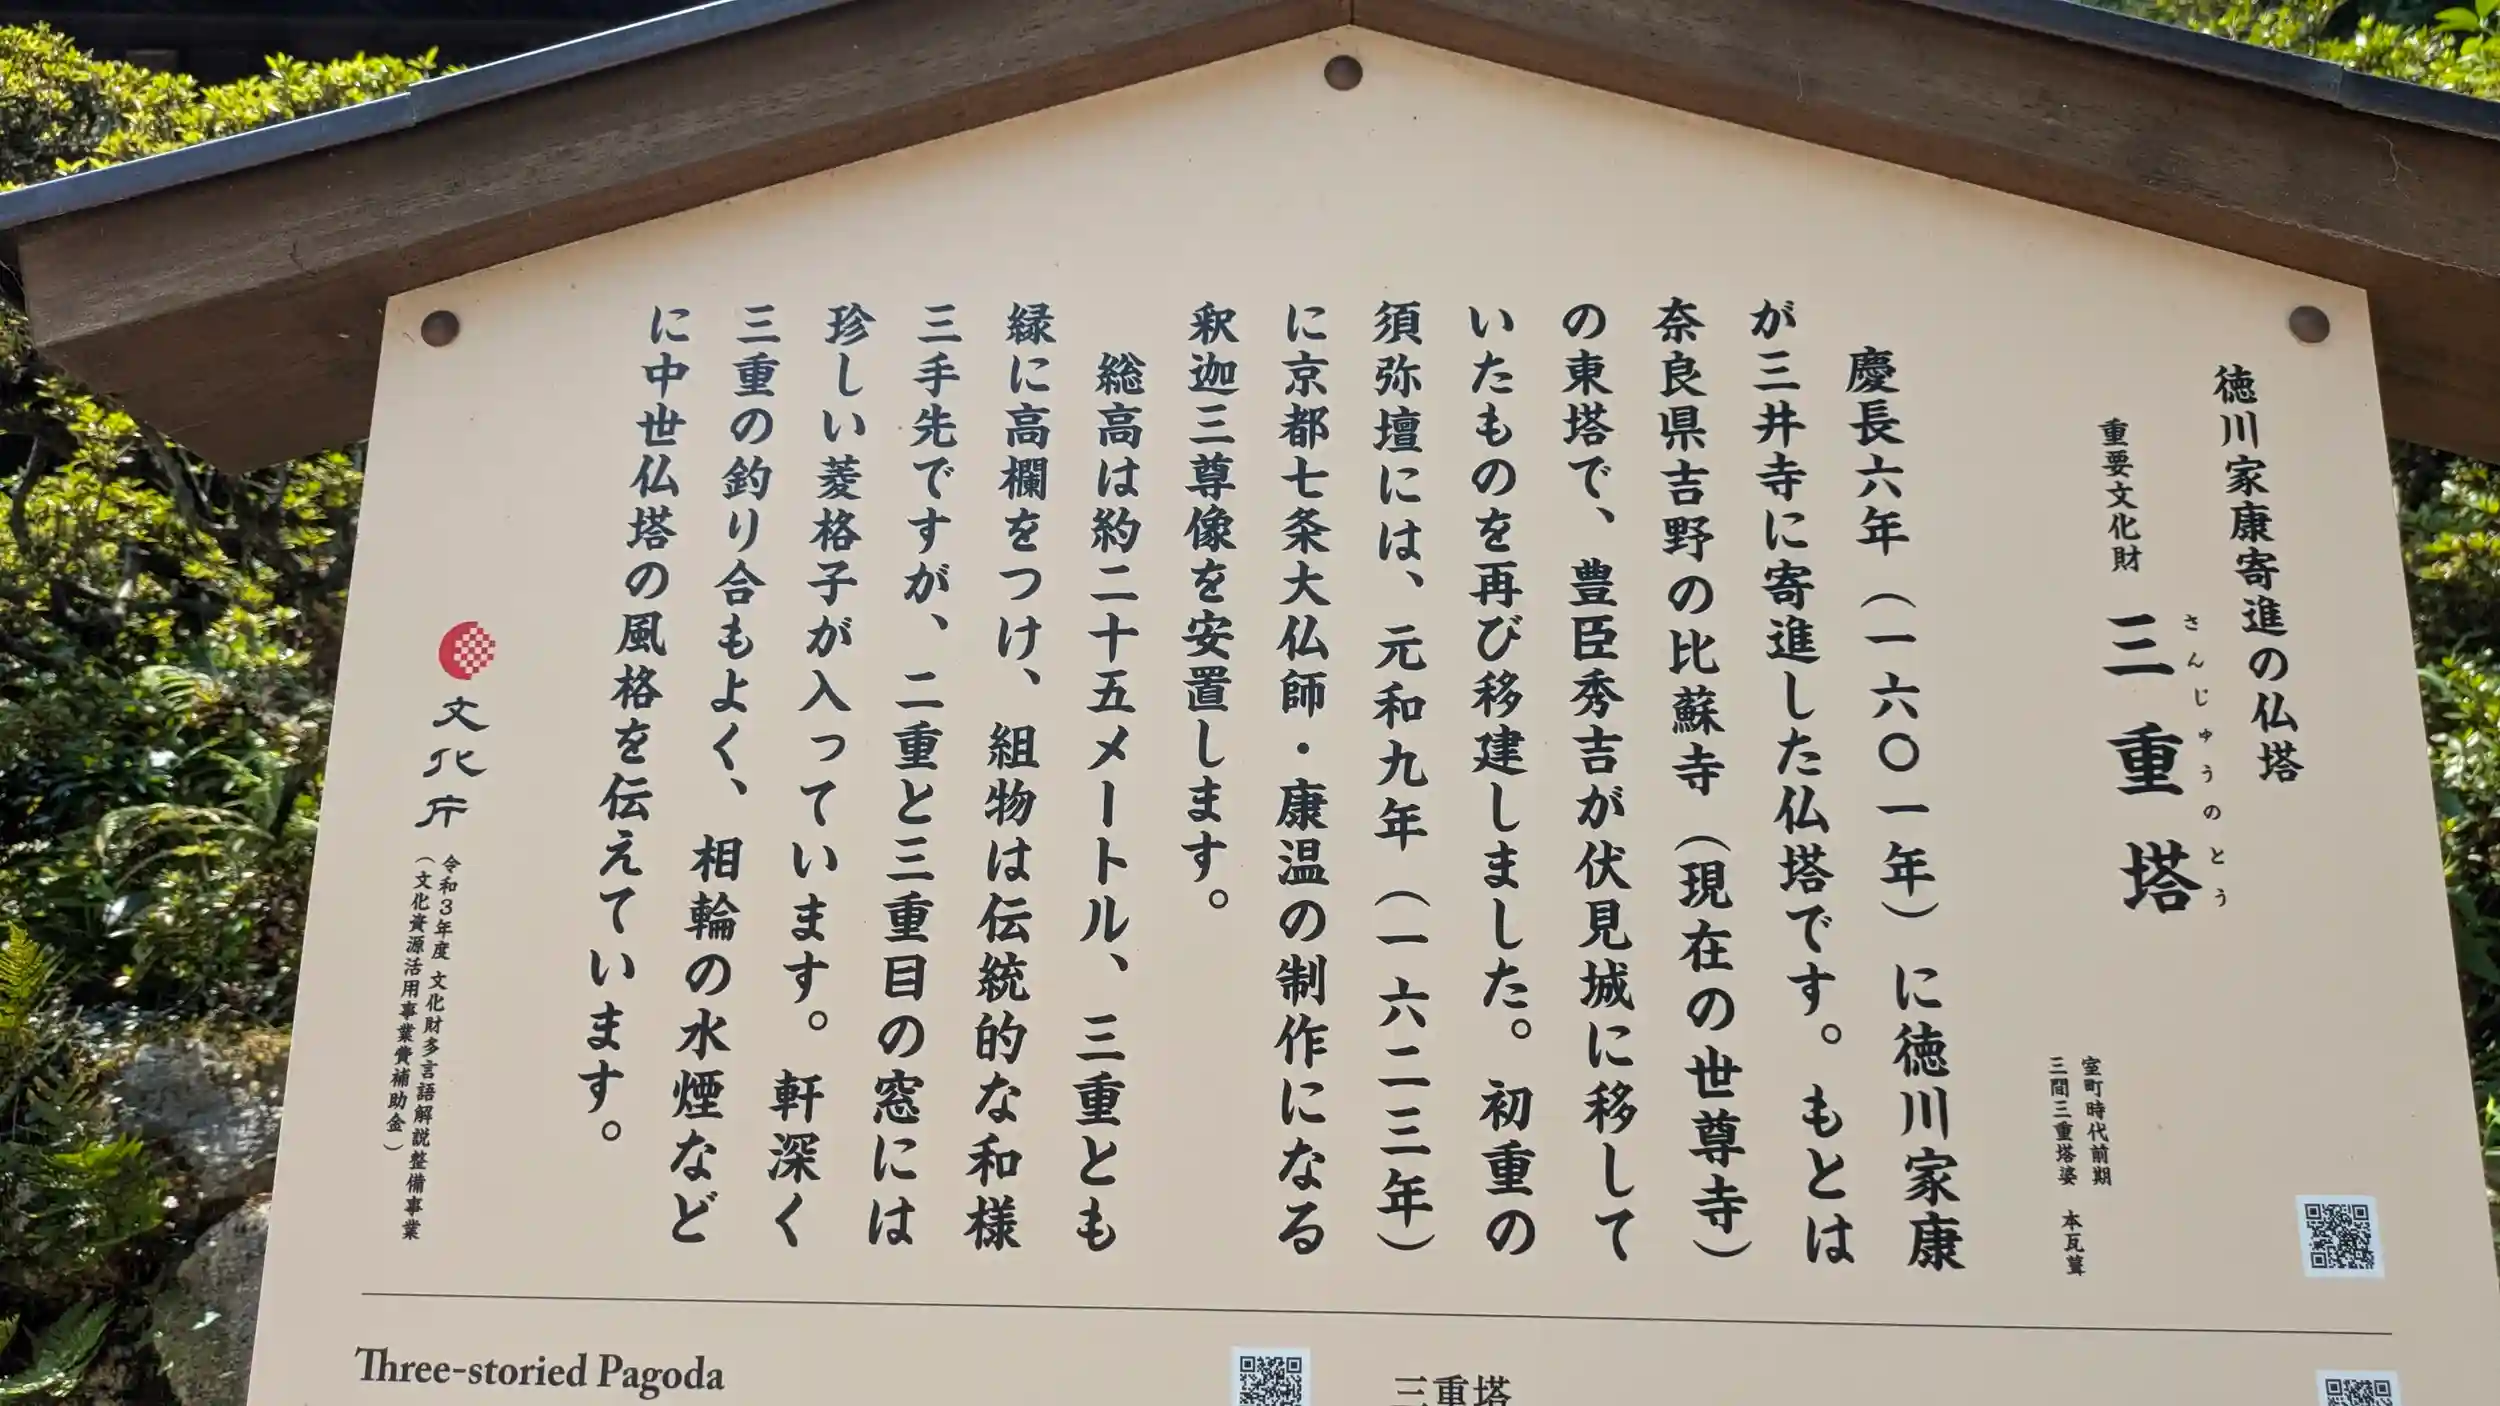 徳川家康寄進の仏塔
重要文化財 三重塔
さんじゅうのとう
室町時代前期
三間三重塔婆 本瓦葺
慶長六年（一六〇一年）に徳川家康
が三井寺に寄進した仏塔です。もとは
奈良県吉野の比蘇寺（現在の世尊寺）
の東塔で、豊臣秀吉が伏見城に移して
いたものを再び移建しました。初重の
須弥壇には、元和九年（一六二三年）
に京都七条大仏師・康温の制作になる
釈迦三尊像を安置します。
総高は約二十五メートル、三重とも
縁に高欄をつけ、組物は伝統的な和様
三手先ですが、二重と三重目の窓には
珍しい菱格子が入っています。軒深く
三重の釣り合もよく、相輪の水煙など
に中世仏塔の風格を伝えています。
文化庁
令和3年度 文化財多言語解説整備事業
（文化資源活用事業費補助金）
Three-storied Pagoda
三重塔